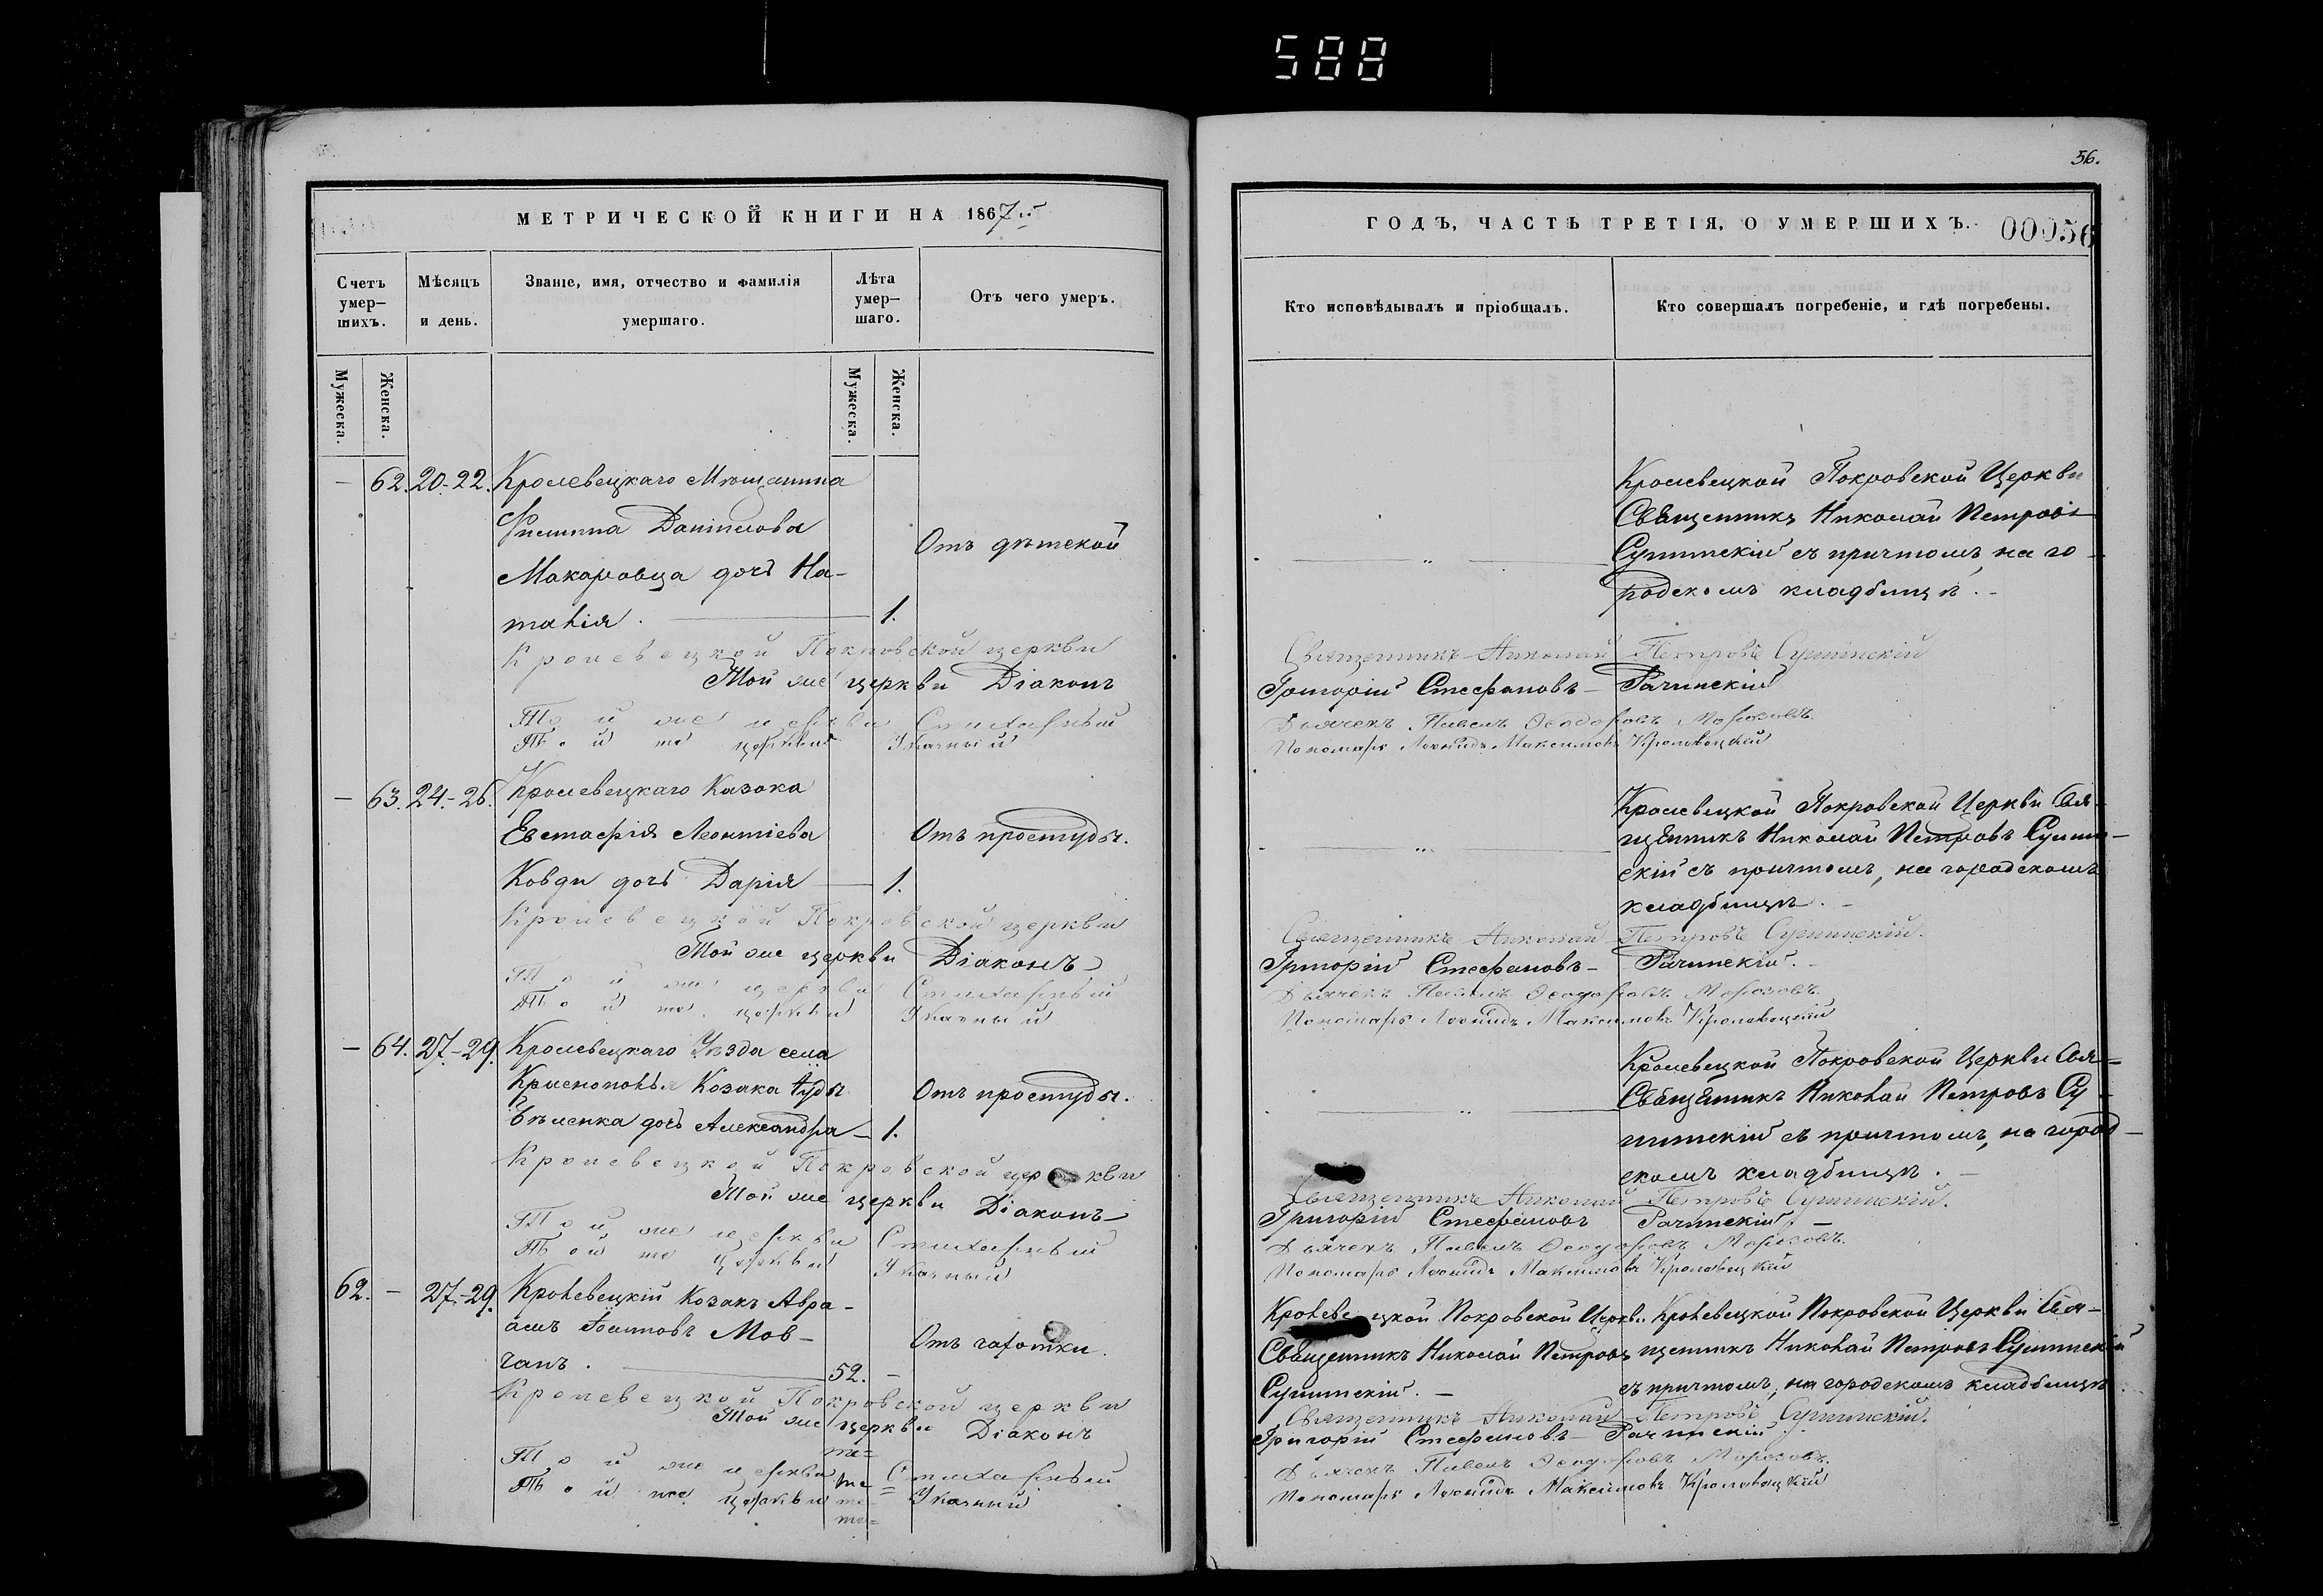 588
56.
МЕТРИЧЕСКОЙ КНИГИ НА 1867й
ГОДЪ, ЧАСТЬ ТРЕТІЯ, О УМЕРШИХЪ.
00056
Счетъ умер-шихъ.
Мѣсяцъ и день.
Званіе, имя, отчество и фамилія умершаго.
Лѣта умер-шаго.
Отъ чего умеръ.
Кто исповѣдывалъ и пріобщалъ.
Кто совершалъ погребеніе, и гдѣ погребены.
Мужеска.
Женска.
Мужеска.
Женска.
— 62. 20-22. Кролевецкаго Мѣщанина
Филиппа Даніилова
Макаровца дочь На-
талія. — 1.
Отъ дѣтской
Кролевецкой Покровской Церкви
Священникъ Николай Петровъ
Сулимскій съ причтомъ, на го-
родскомъ кладбищѣ. -
Кролевецкой Покровской церкви Священникъ Николай Петровъ
Той же церкви Діаконъ Григорій Стефановъ Рачинскій
Той же церкви Стихарный Дьячекъ Павелъ Ѳеодоровъ Морозовъ.
Той же церкви Указный Пономарь Леонидъ Максимовъ Кролевецкій
— 63. 24.-26. Кролевецкаго Казака
Евстафія Леонтіева
Ковди дочь Дарія — 1.
Отъ простуды.
Кролевецкой Покровской Церкви Свя-
щенникъ Николай Петровъ
скій съ причтомъ, на городскомъ
кладбищѣ. -
Кролевецкой Покровской церкви Священникъ Николай Петровъ
Той же церкви Діаконъ Григорій Стефановъ Рачинскій.
Той же церкви Стихарный Дьячекъ Павелъ Ѳеодоровъ Морозовъ.
Той же церкви Указный Пономарь Леонидъ Максимовъ Кролевецкій
— 64. 27.-29. Кролевецкаго Уѣзда села
Краснополья Козака
дочь Александра — 1.
Отъ простуды.
Кролевецкой Покровской Церкви Свя-
Священникъ Николай Петровъ Су-
съ причтомъ, на город-
скомъ кладбищѣ. -
Кролевецкой Покровской церкви Священникъ Николай Петровъ
Той же церкви Діаконъ Григорій Стефановъ Рачинскій. —
Той же церкви Стихарный Дьячекъ Павелъ Ѳеодоровъ Морозовъ.
Той же церкви Указный Пономарь Леонидъ Максимовъ Кролевецкій
62. — 27.-29. Кролевецкій Козакъ Авра-
амъ Іоанновъ Мов-
чанъ. — 52. -
Отъ чахотки.
Кролевецкой Покровской Церкви
Священникъ Николай Петровъ
Кролевецкой Покровской Церкви Свя-
щенникъ Николай Петровъ
съ причтомъ, на городскомъ кладбищѣ.
Кролевецкой Покровской церкви Священникъ Николай Петровъ
Той же церкви Діаконъ Григорій Стефановъ Рачинскій.
Той же церкви Стихарный Дьячекъ Павелъ Ѳеодоровъ Морозовъ.
Той же церкви Указный Пономарь Леонидъ Максимовъ Кролевецкій